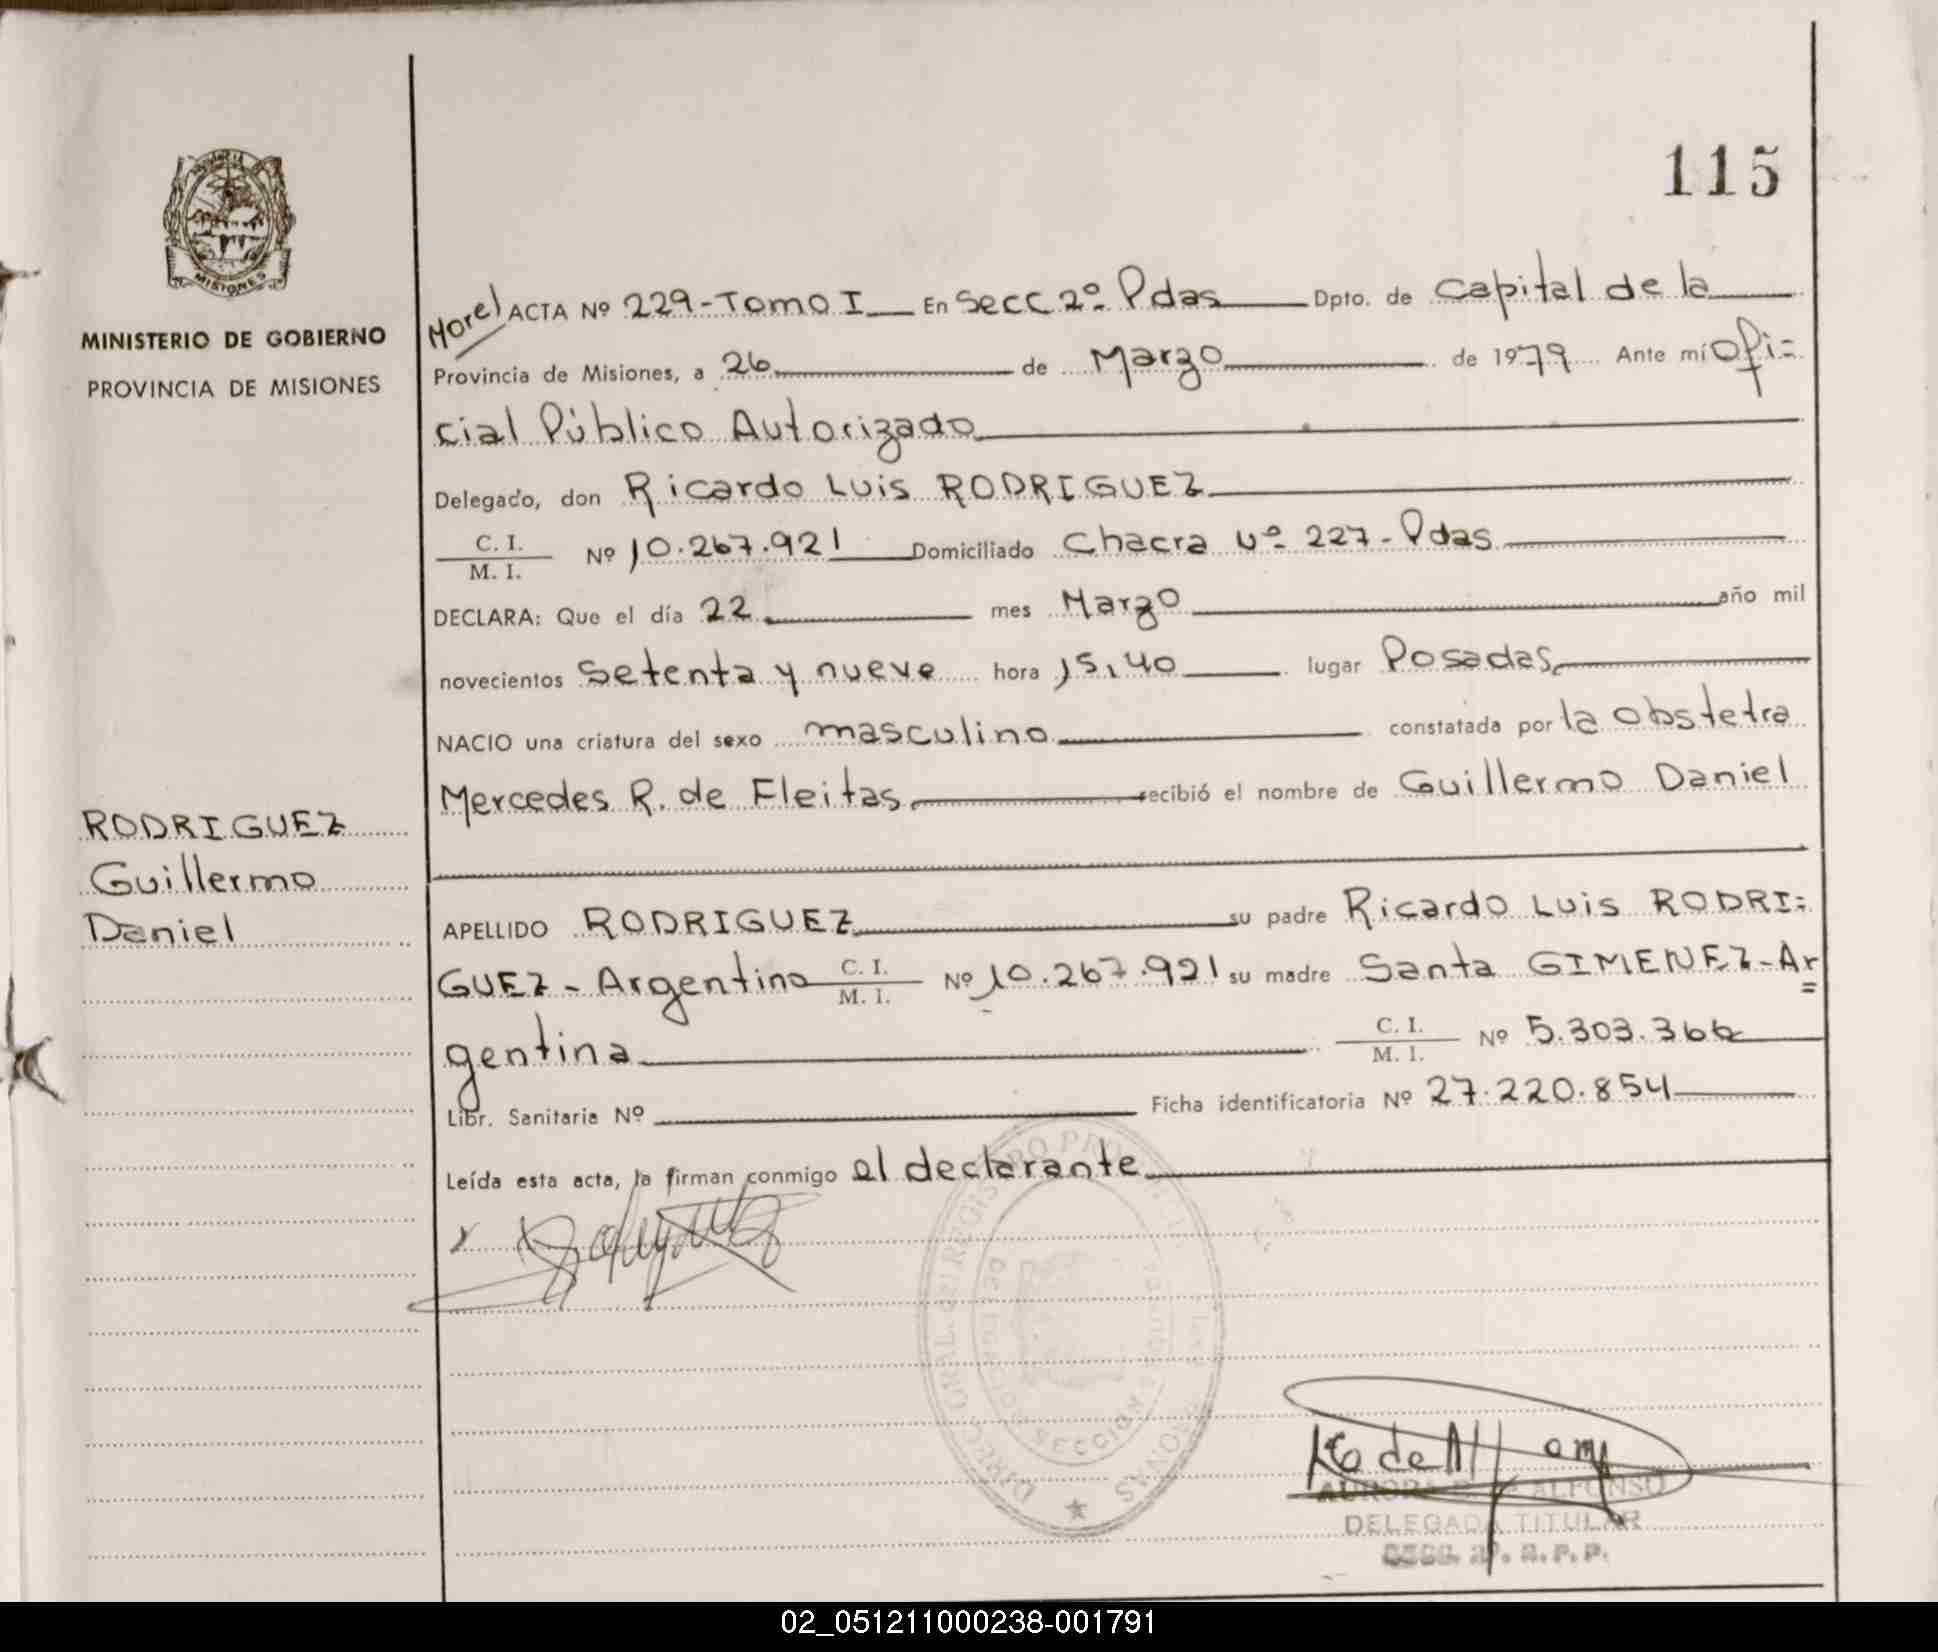 MISIONES
MINISTERIO DE GOBIERNO
PROVINCIA DE MISIONES
RODRIGUEZ
Guillermo
Daniel
115
Morel ACTA Nº 229-Tomo I En Secc 2º Pdas Dpto. de Capital de la
Provincia de Misiones, a 26 de Marzo de 1979 Ante mí Ofi=
cial Público Autorizado
Delegado, don Ricardo Luis RODRIGUEZ
C. I.
M. I. Nº 10.267.921 Domiciliado Chacra Nº 227-Pdas
DECLARA: Que el día 22 mes Marzo año mil
novecientos setenta y nueve hora 15,40 lugar Posadas
NACIO una criatura del sexo masculino constatada por la obstetra
Mercedes R. de Fleitas recibió el nombre de Guillermo Daniel
APELLIDO RODRIGUEZ su padre Ricardo Luis RODRI=
GUEZ - Argentino C. I. M. I. Nº 10.267.921 su madre Santa GIMENEZ-Ar=
gentina C. I. M. I. Nº 5.303.366
Libr. Sanitaria Nº Ficha identificatoria Nº 27.220.854
Leída esta acta, la firman conmigo el declarante
DIREC. GRAL. de REGISTRO PERSONAS
SECCION
AURORA ALFONSO
DELEGADA TITULAR
02_051211000238-001791